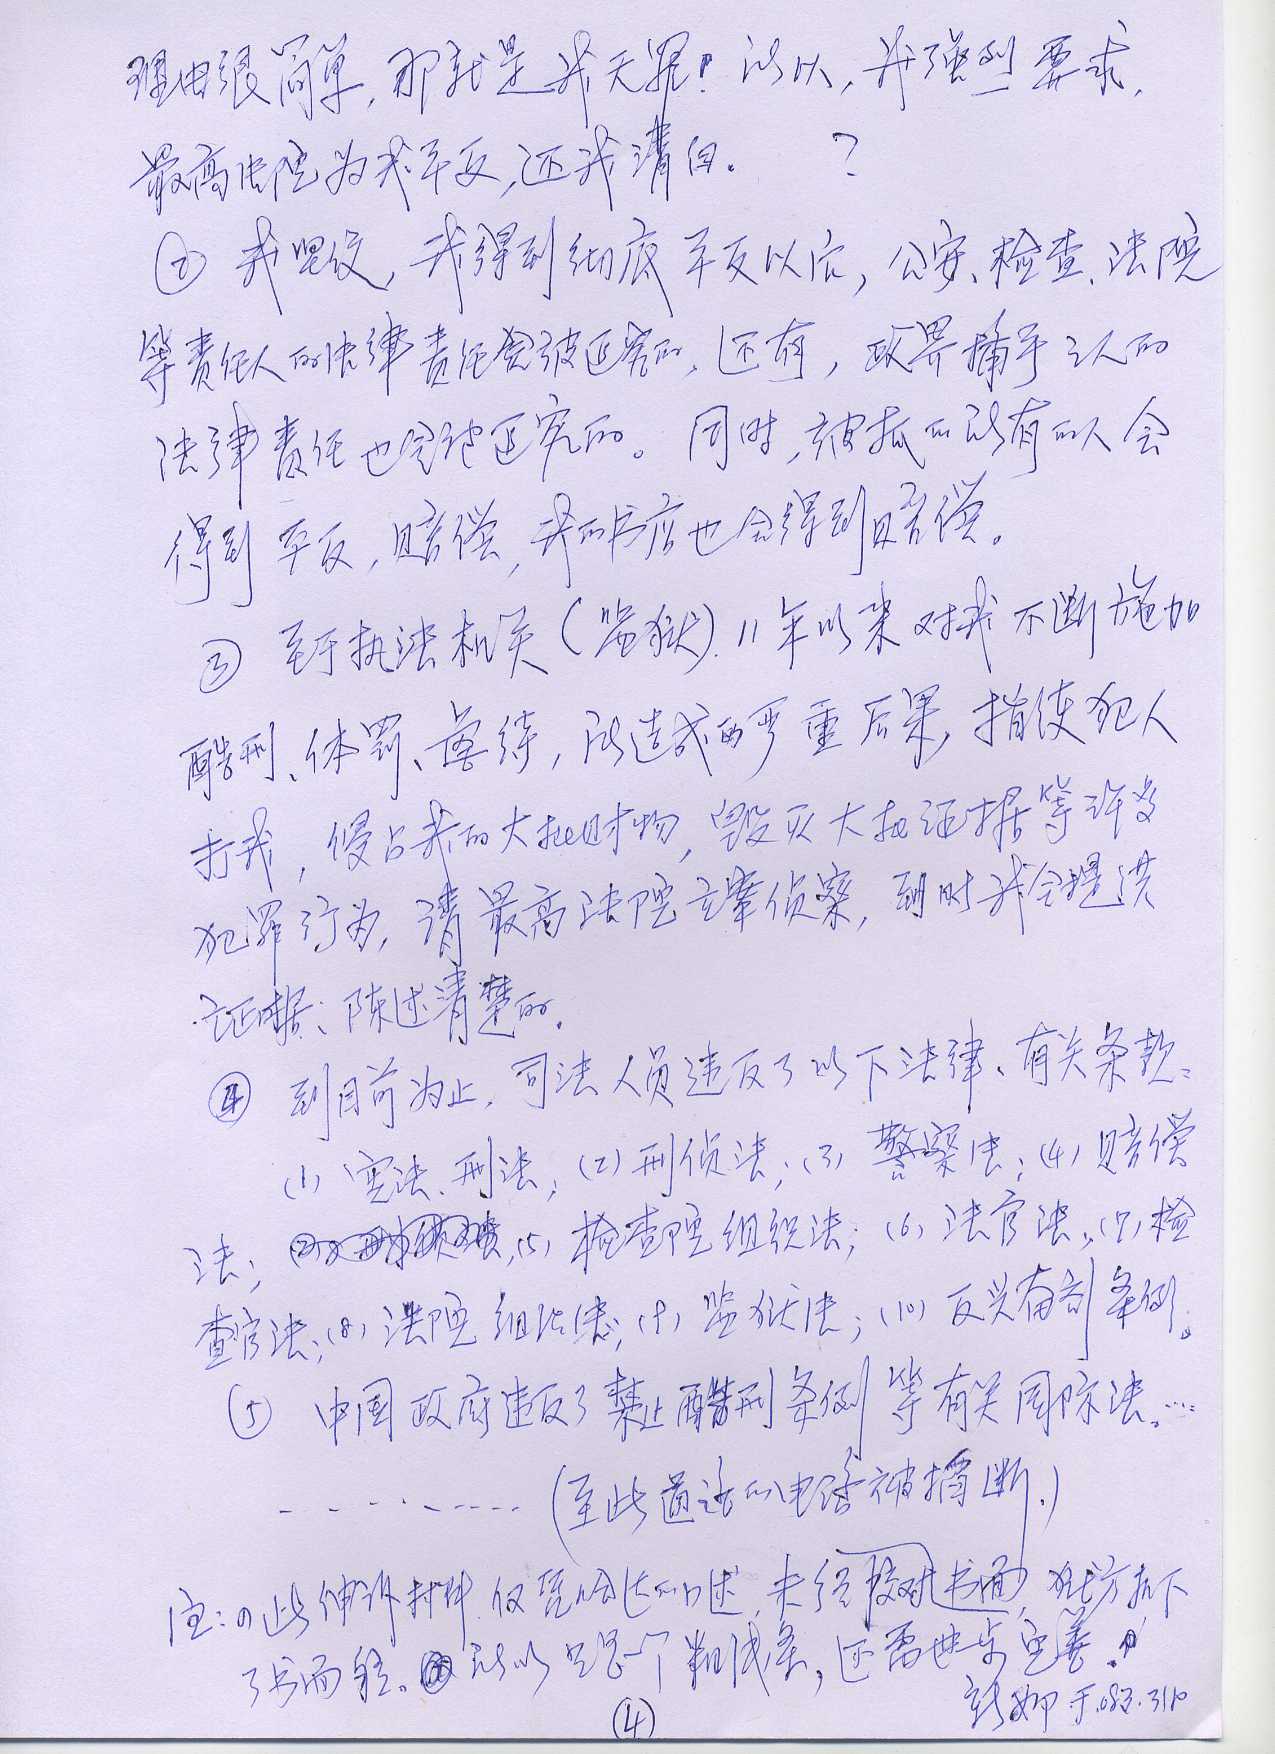 理由很简单，那就是我无罪！所以，我强烈要求，
最高法院为我平反，还我清白。 ？
② 我坚信，我得到彻底平反以后，公安、检查、法院
等责任人的法律责任会被追究的，还有，政界插手之人的
法律责任也会被追究的。同时，被抓的所有的人会
得到平反，赔偿，我的书店也会得到赔偿。
③ 至于执法机关（监狱）.11年以来对我不断施加
酷刑、体罚、虐待，所造成的严重后果，指使犯人
打我，侵占我的大批财物，毁灭大批证据等许多
犯罪行为，请最高法院立案侦察，到时我会提供
证据、陈述清楚的。
④ 到目前为止，司法人员违反了以下法律、有关条款：
(1) 宪法、刑法；(2) 刑侦法；(3) 警察法；(4) 赔偿
法；(5) 检查院组织法；(6) 法官法；(7) 检
查官法；(8) 法院组织法；(9) 监狱法；(10) 反兴奋剂条例。
⑤ 中国政府违反了禁止酷刑条例等有关国际法。……
----------（至此通话的电话被掐断。）
注：此伸诉材料仅凭口述，未经校对书面，狱方扣下
了书面稿。所以只是个粗线条，还需进步完善。
新娜于.083.31日
④